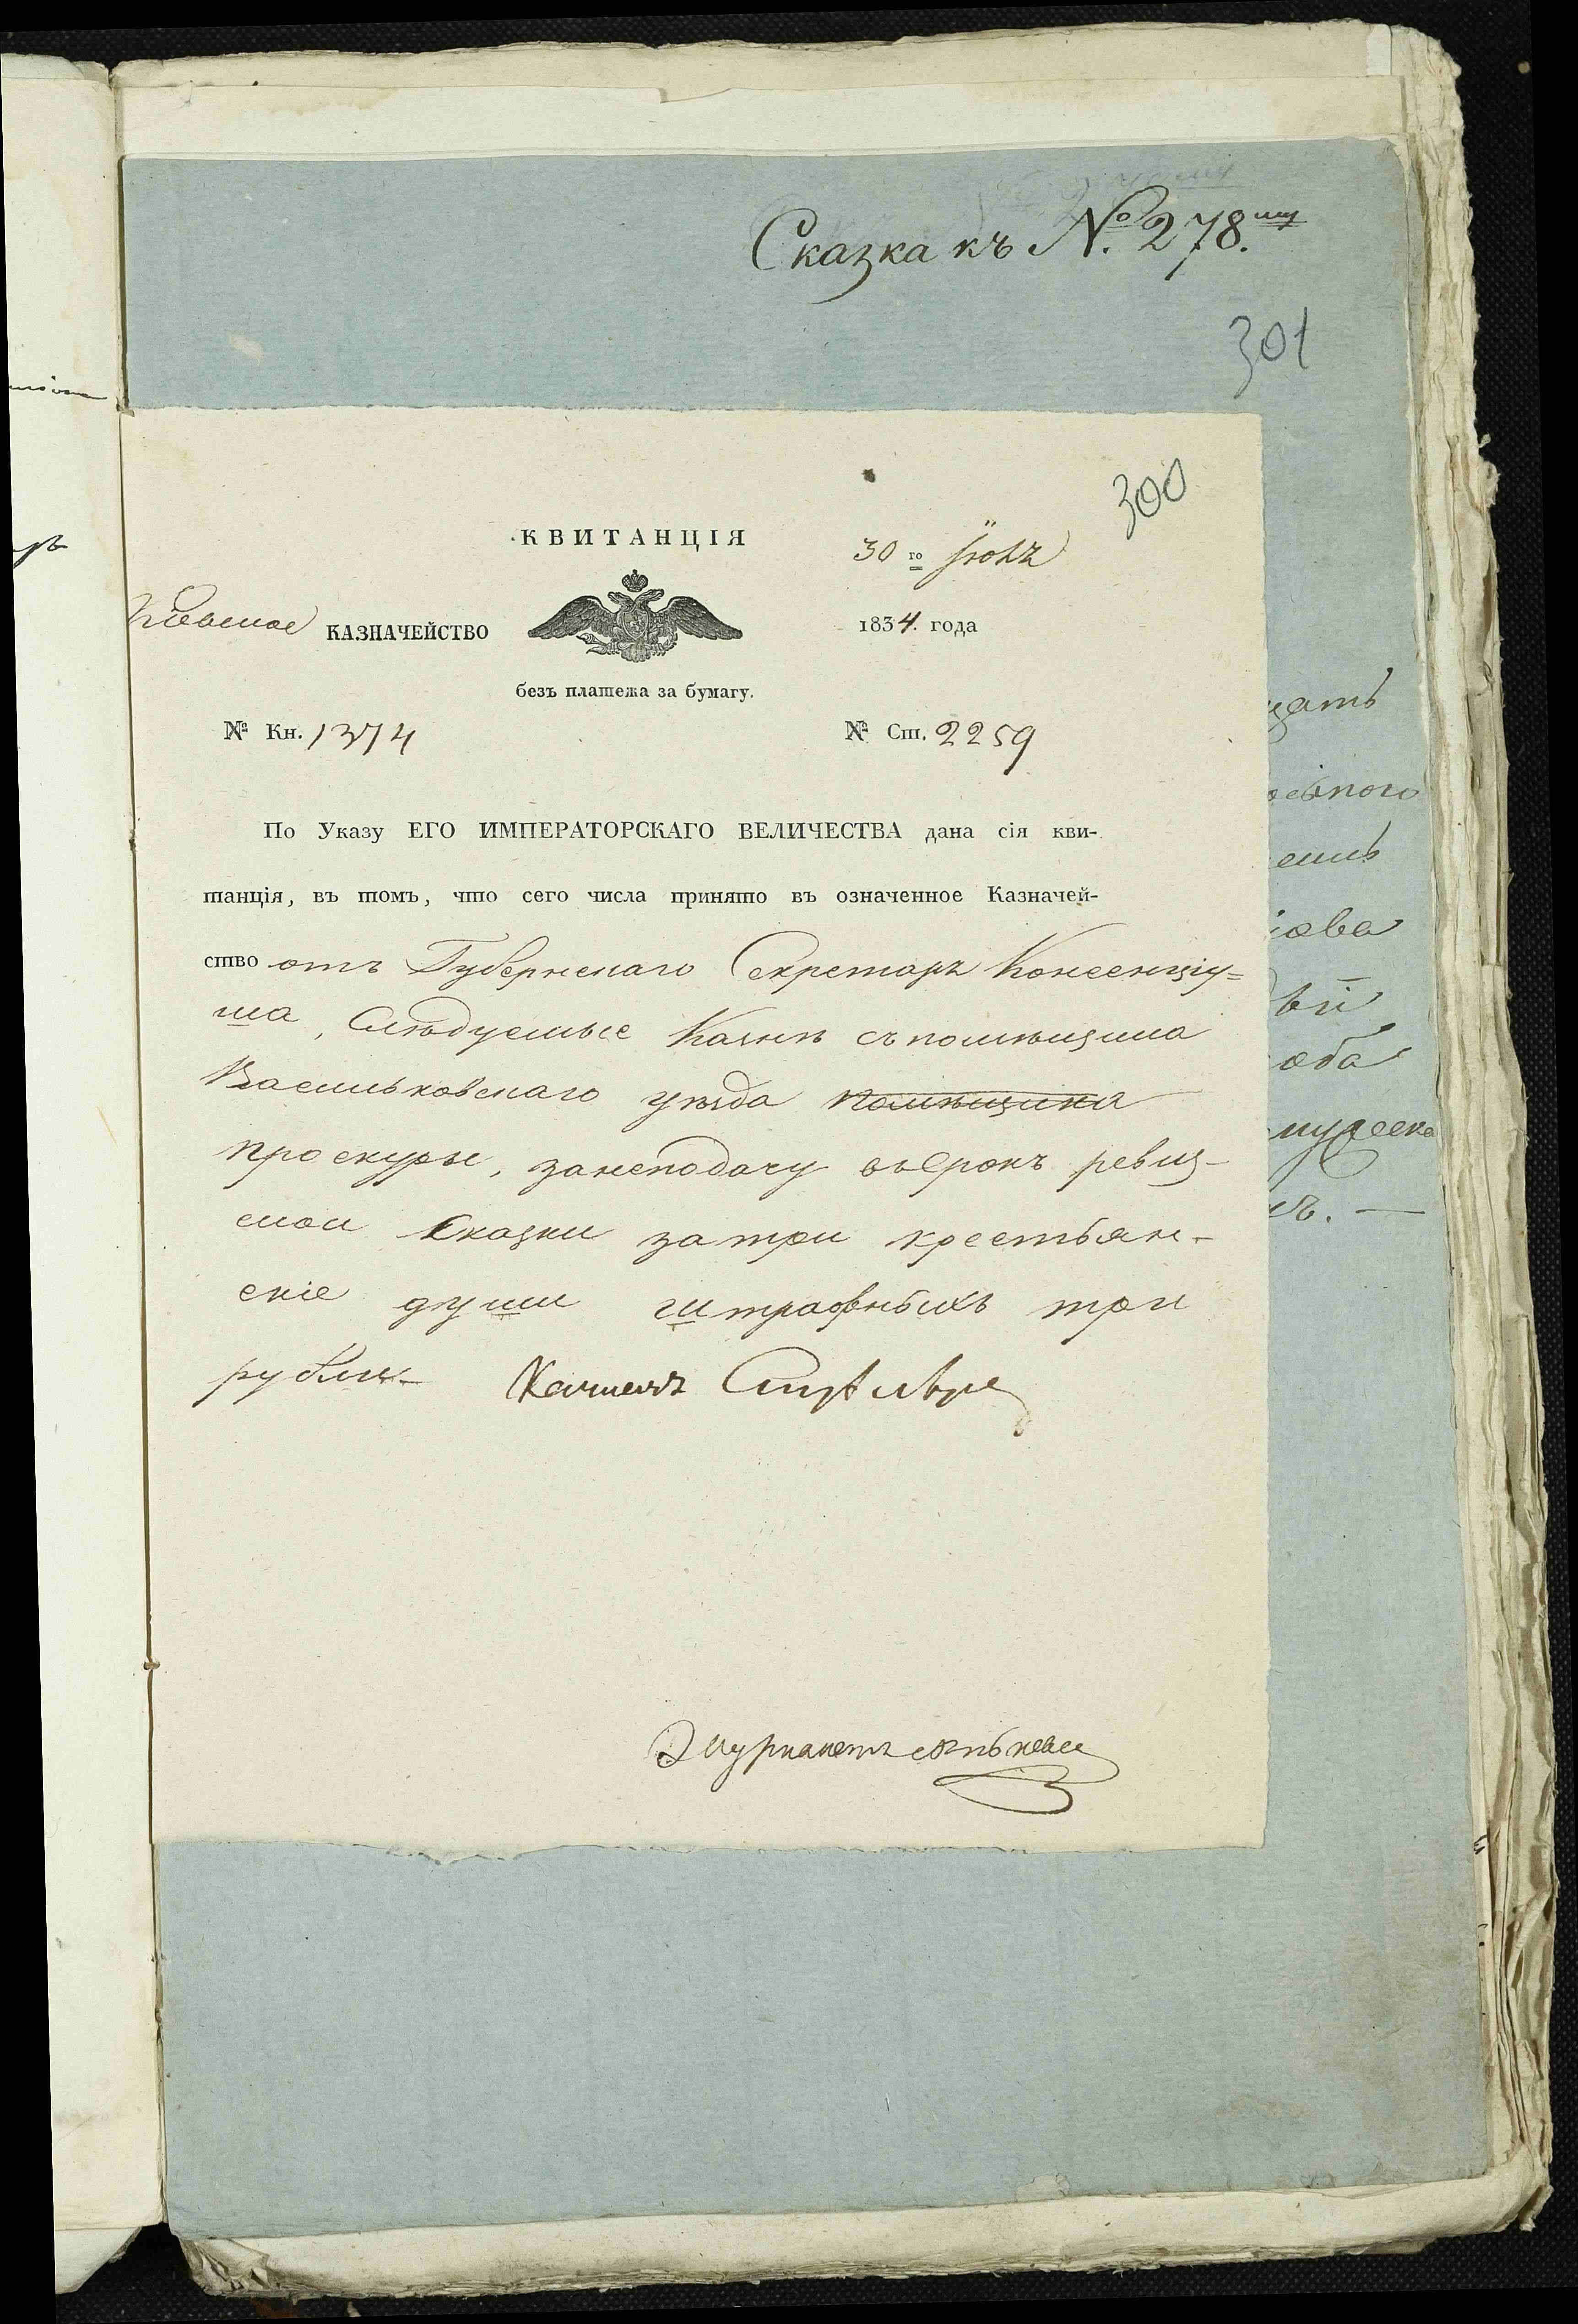 Сказка къ №. 278.му
301
300
КВИТАНЦІЯ
30 го
Кіевское КАЗНАЧЕЙСТВО
1834. года
безъ платежа за бумагу.
№ Кн. 1374
№ Ст. 2259
По Указу ЕГО ИМПЕРАТОРСКАГО ВЕЛИЧЕСТВА дана сія кви-
танція, въ томъ, что сего числа принято въ означенное Казначей-
ство отъ Губернскаго Секретаря
ша, Слѣдуемые Казнѣ съ помѣщика
Васильковскаго уѣзда помѣщика
Проскуры, за неподачу въ срокъ ревиз-
ской Сказки за три крестьян-
скіе души штрафныхъ три
рубли